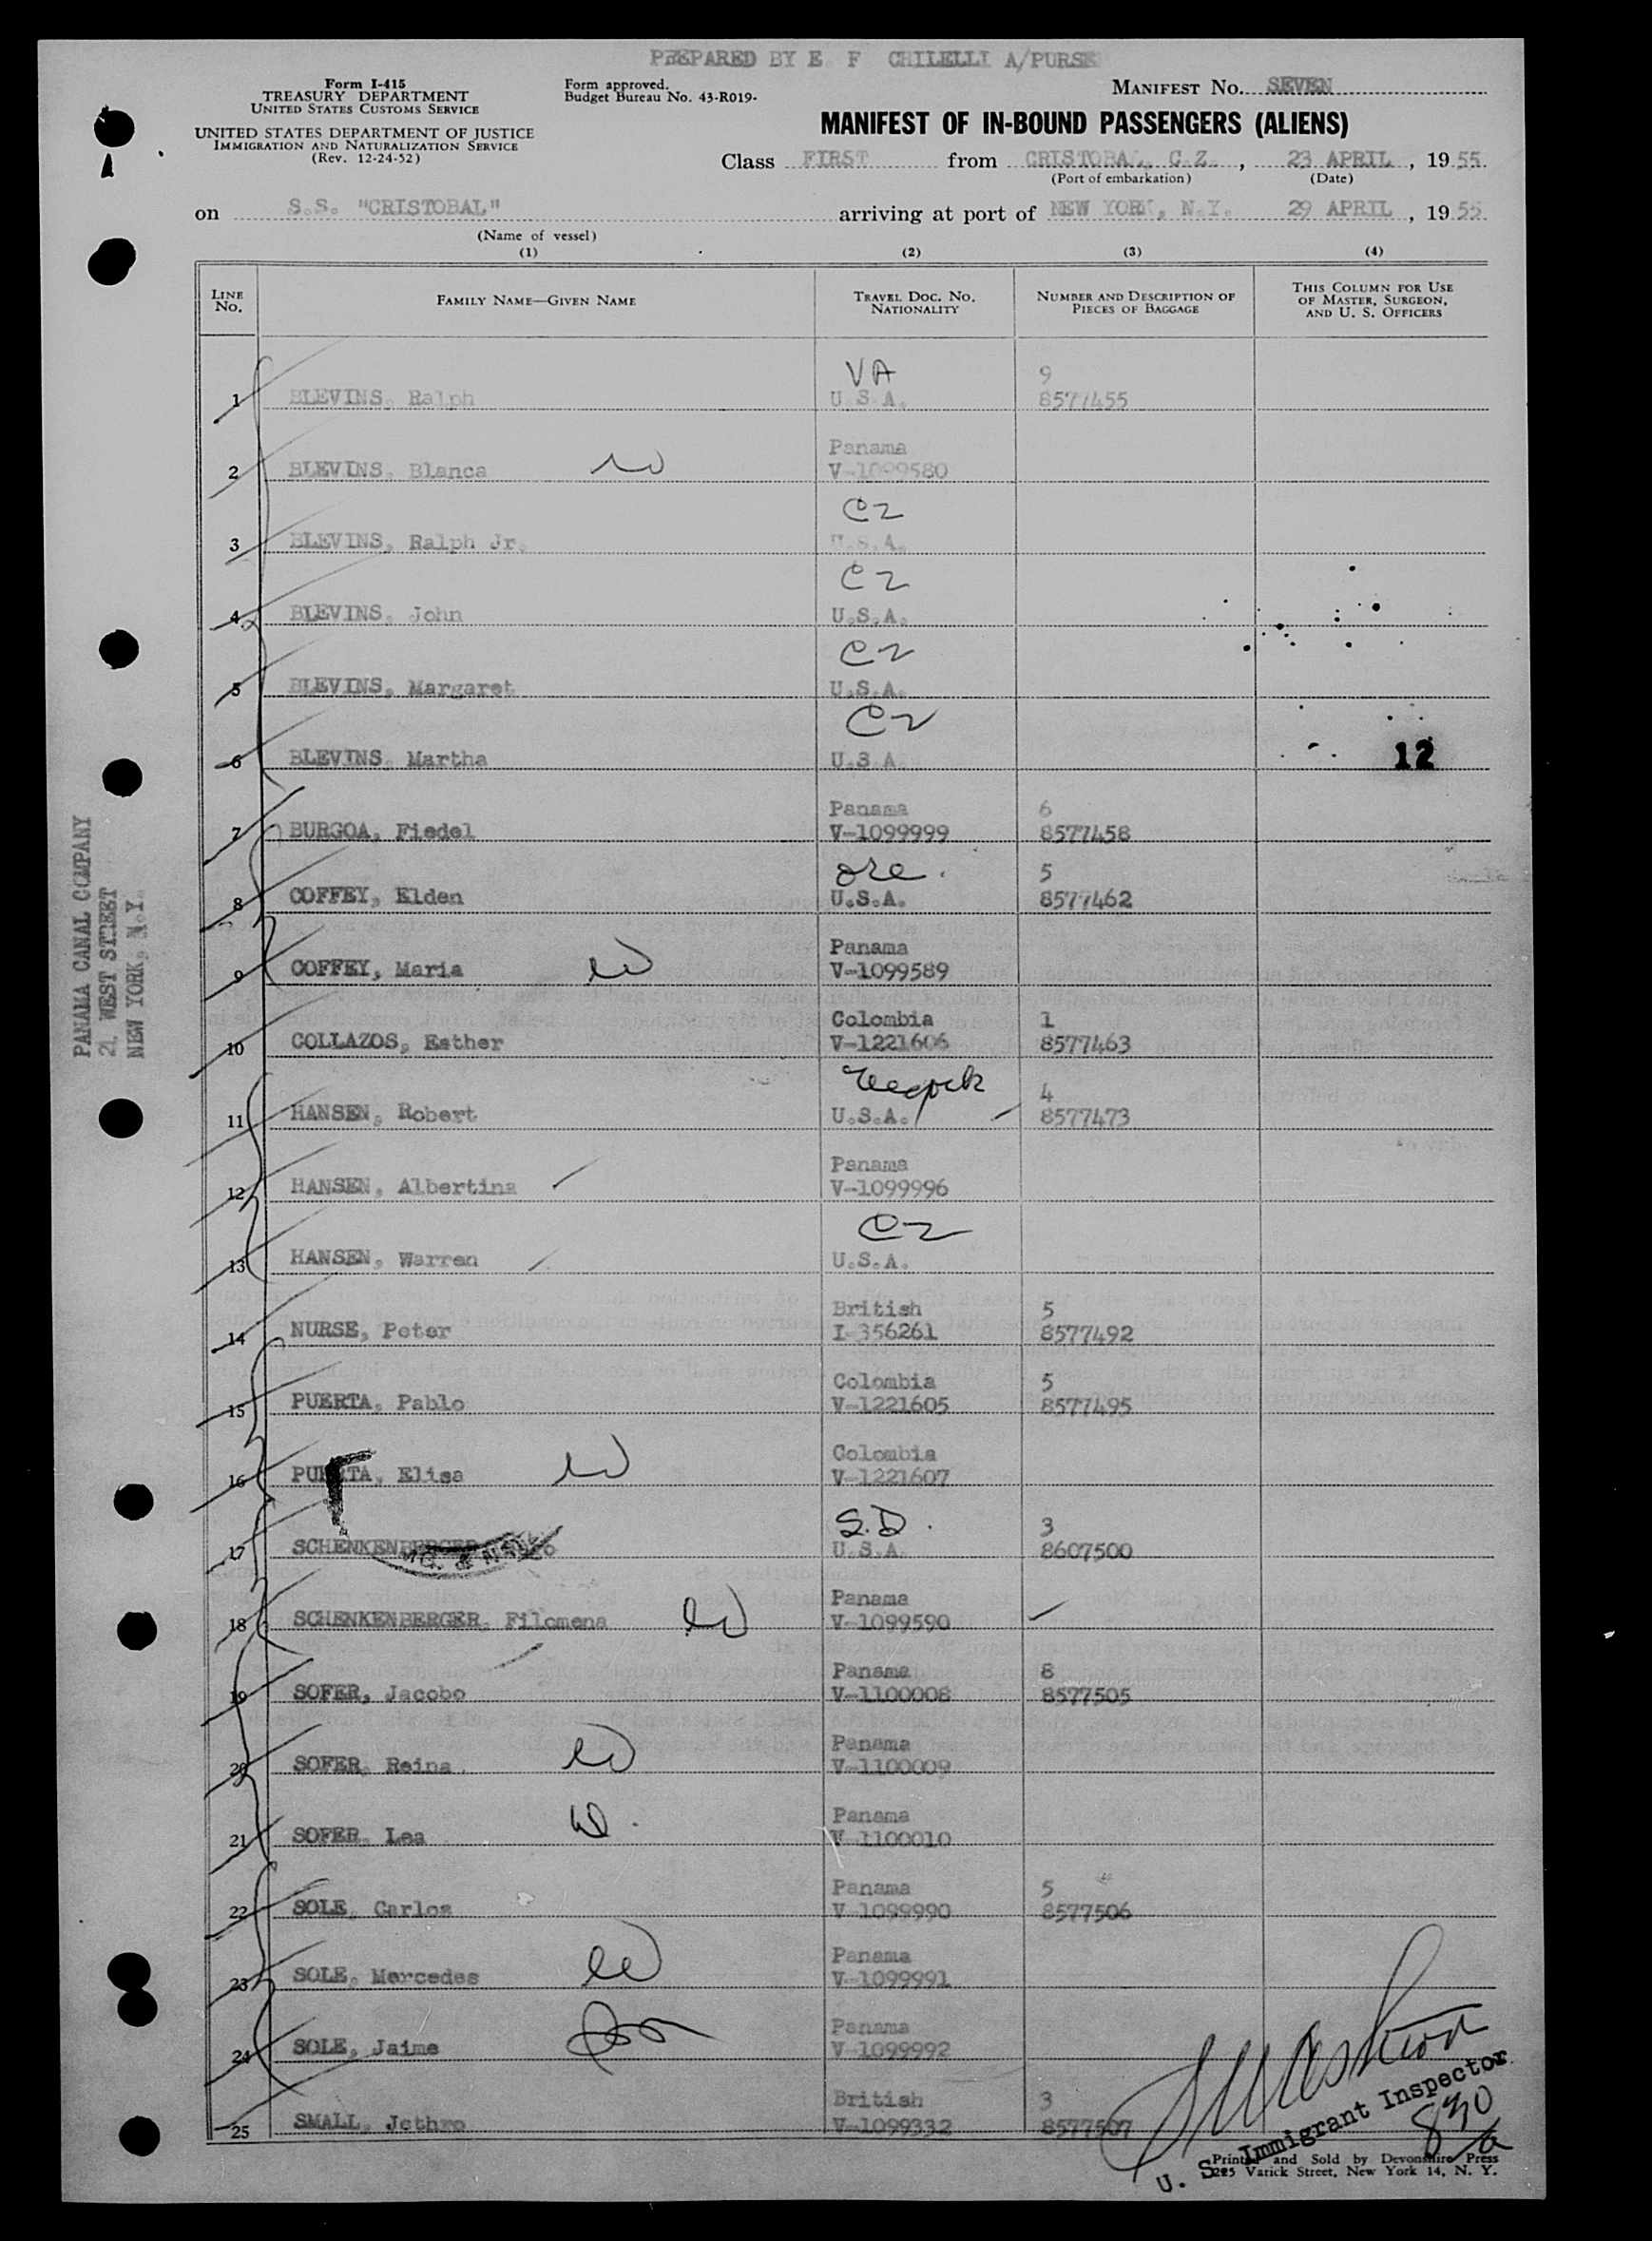 PREPARED BY E F CHILELLI A/PURSE
Form I-415
TREASURY DEPARTMENT
UNITED STATES CUSTOMS SERVICE
UNITED STATES DEPARTMENT OF JUSTICE
IMMIGRATION AND NATURALIZATION SERVICE
(Rev. 12-24-52)
Form approved.
Budget Bureau No. 43-R019-
MANIFEST NO. SEVEN
MANIFEST OF IN-BOUND PASSENGERS (ALIENS)
Class FIRST from CRISTOBAL, C.Z., 23 APRIL, 1955
(Port of embarkation) (Date)
on S.S. "CRISTOBAL" arriving at port of NEW YORK, N.Y. 29 APRIL, 1955
(Name of vessel)
(1) (2) (3) (4)
LINE NO. FAMILY NAME—GIVEN NAME TRAVEL DOC. NO. NATIONALITY NUMBER AND DESCRIPTION OF PIECES OF BAGGAGE THIS COLUMN FOR USE OF MASTER, SURGEON, AND U. S. OFFICERS
VA 9
1 BLEVINS, Ralph U.S.A. 8577455
Panama
2 BLEVINS, Blanca V-1099580
CZ
3 BLEVINS, Ralph Jr. U.S.A.
CZ
4 BLEVINS, John U.S.A.
CZ
5 BLEVINS, Margaret U.S.A.
CZ
6 BLEVINS, Martha U.S.A. 12
Panama 6
7 BURGOA, Fiedel V-1099999 8577458
ore. 5
8 COFFEY, Elden U.S.A. 8577462
Panama
9 COFFEY, Maria V-1099589
Colombia 1
10 COLLAZOS, Esther V-1221606 8577463
4
11 HANSEN, Robert U.S.A. 8577473
Panama
12 HANSEN, Albertina V-1099996
CZ
13 HANSEN, Warren U.S.A.
British 5
14 NURSE, Peter I-356261 8577492
Colombia 5
15 PUERTA, Pablo V-1221605 8577495
Colombia
16 PUERTA, Elisa V-1221607
S.D. 3
17 SCHENKENBERGER U.S.A. 8607500
Panama
18 SCHENKENBERGER, Filomena V-1099590
Panama 8
19 SOFER, Jacobo V-1100008 8577505
Panama
20 SOFER, Reina V-1100009
Panama
21 SOFER, Lea V-1100010
Panama 5
22 SOLE, Carlos V-1099990 8577506
Panama
23 SOLE, Mercedes V-1099991
Panama
24 SOLE, Jaime V-1099992
British 3
25 SMALL, Jethro V-1099332 8577507
U. S. Immigrant Inspector
830
Printed and Sold by Devonshire Press
225 Varick Street, New York 14, N. Y.
PANAMA CANAL COMPANY
21 WEST STREET
NEW YORK, N.Y.